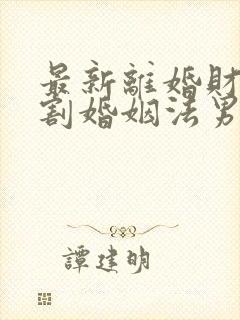 最新離婚財
割婚姻法男
譚建明